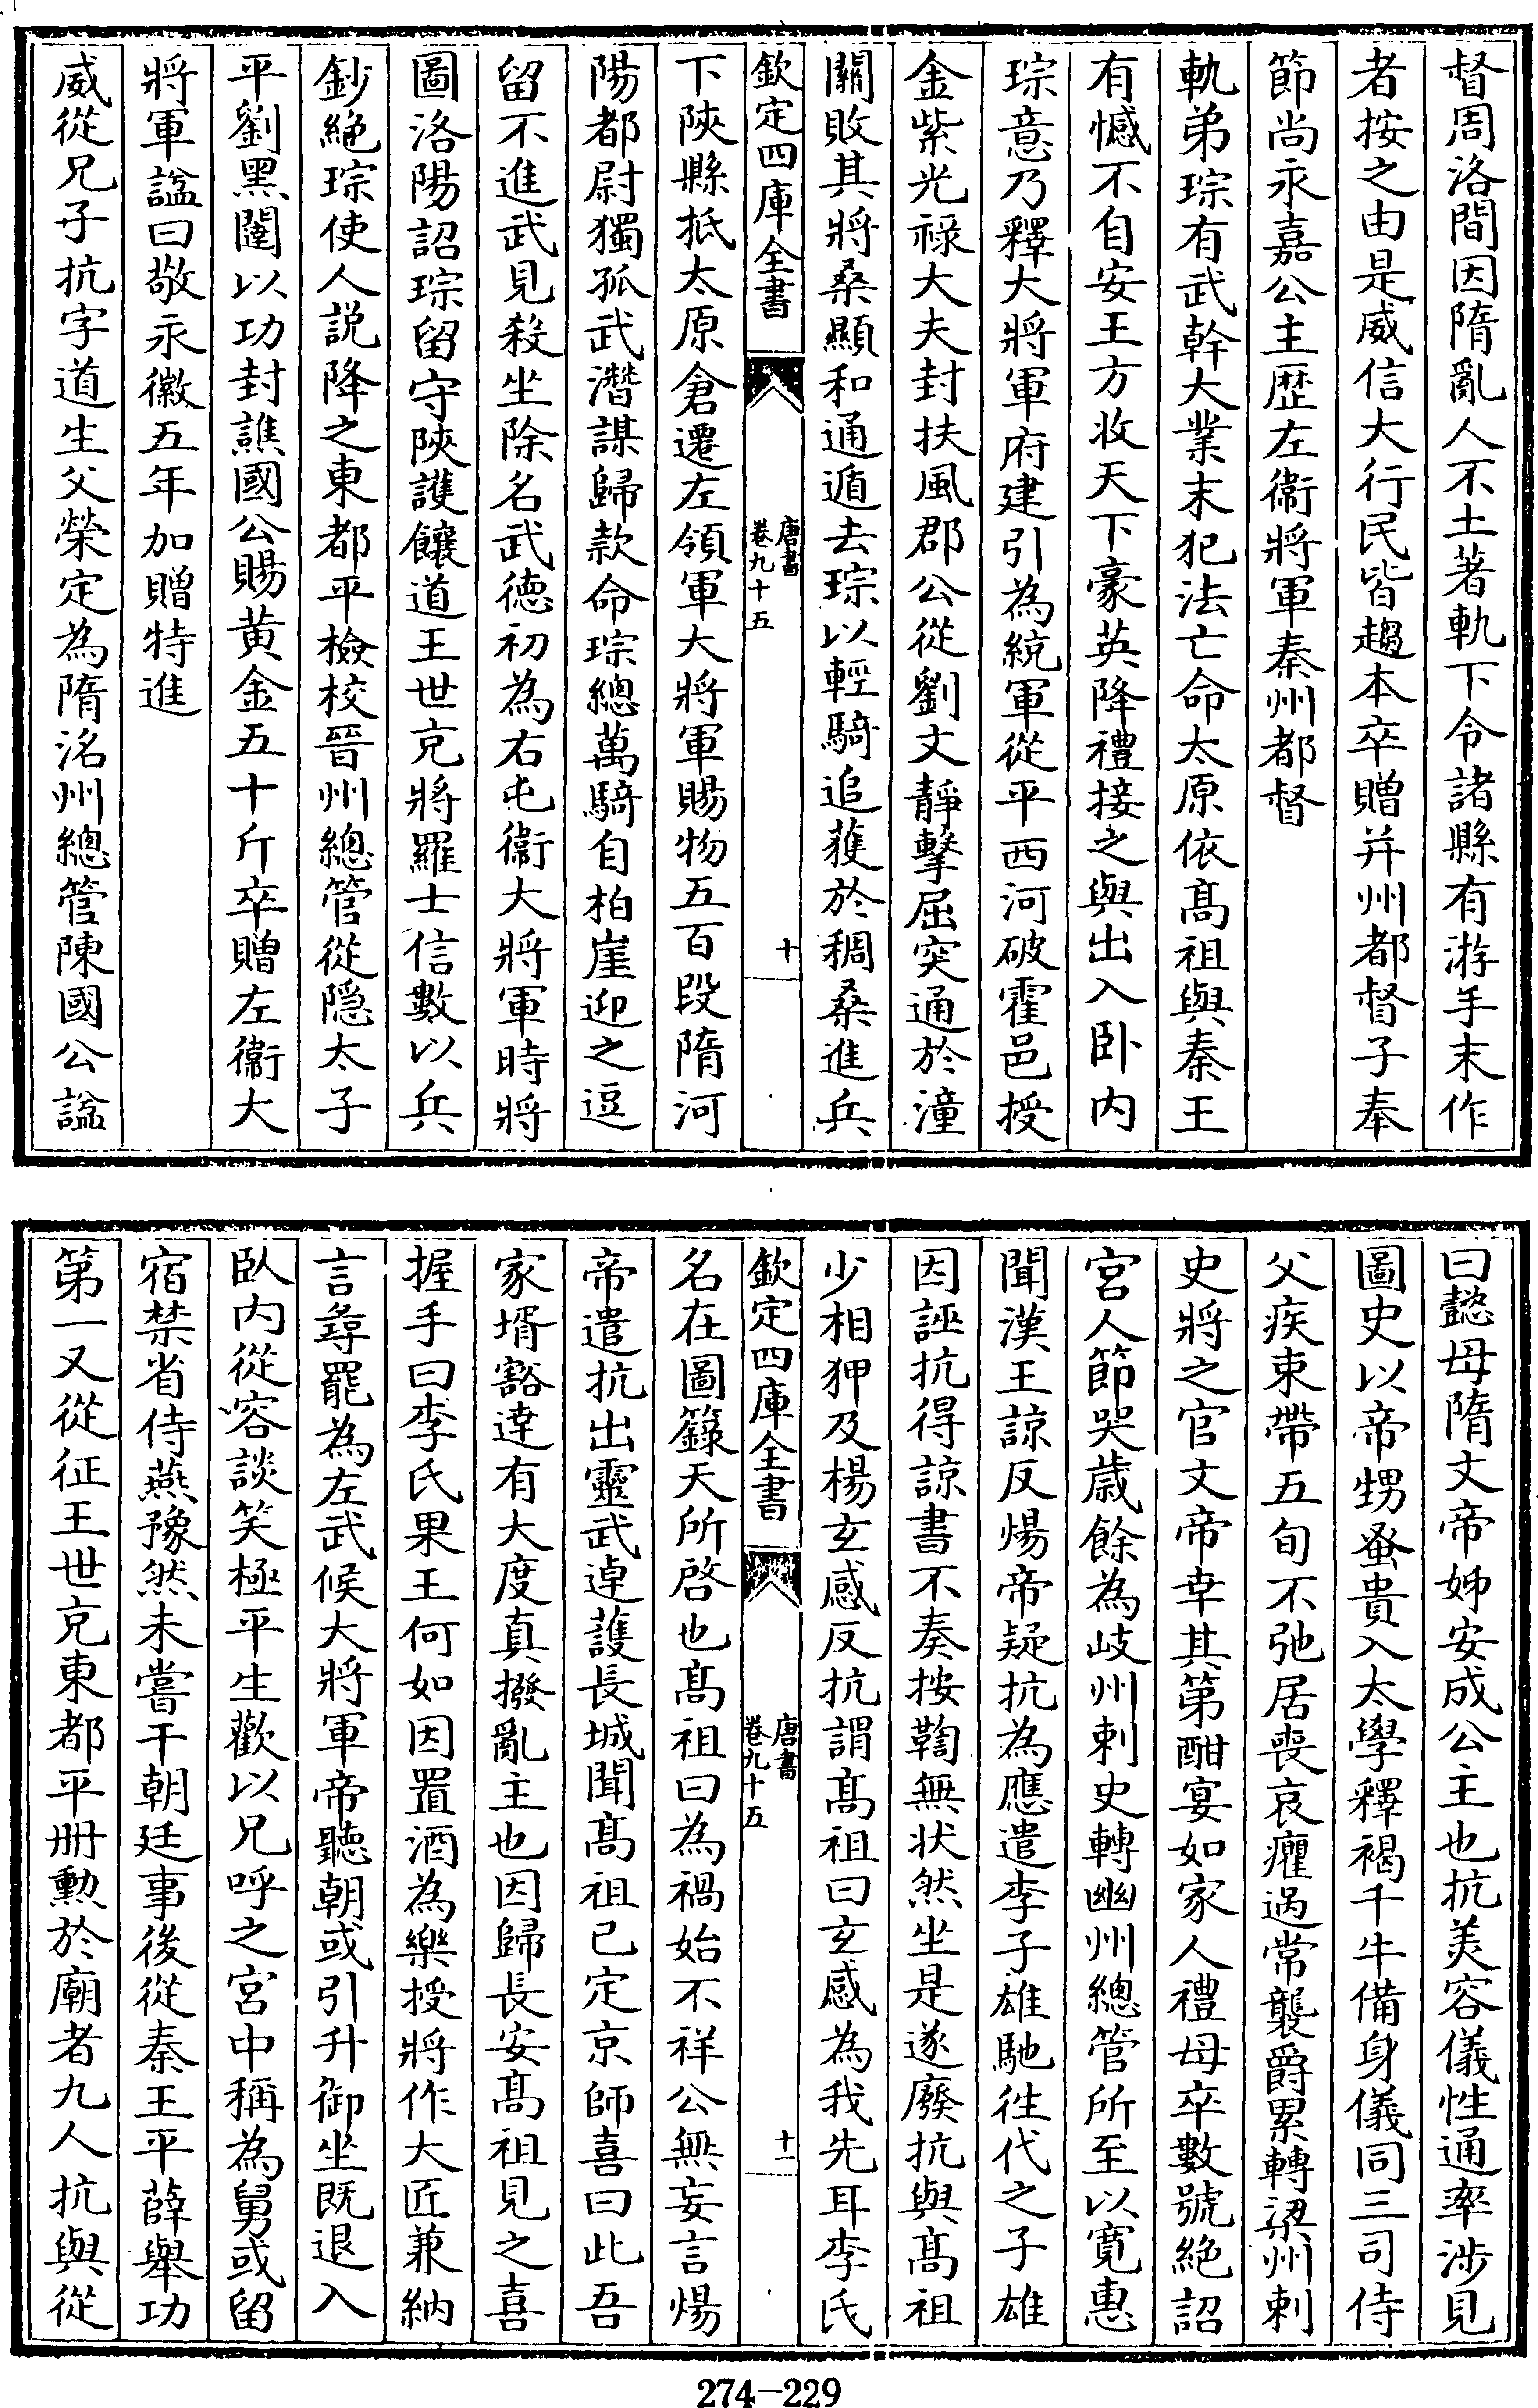 督周洛間因隋亂人不土著軌下令諸縣有游手末作
者按之由是威信大行民皆趨本卒贈并州都督子奉
節尚永嘉公主歷左衞將軍秦州都督
軌弟琮有武幹大業末犯法亡命太原依髙祖與秦王
有憾不自安王方收天下豪英降禮接之與出入卧内
琮意乃釋大將軍府建引為統軍從平西河破霍邑授
金紫光祿大夫封扶風郡公從劉文靜擊屈突通於潼
關敗其將桑顯和通遁去琮以輕騎追獲於稠桑進兵
欽定四庫全書
唐書
卷九十五
十
下陝縣抵太原倉遷左領軍大將軍賜物五百段隋河
陽都尉獨孤武潛謀歸款命琮總萬騎自柏崖迎之逗
留不進武見殺坐除名武德初為右屯衞大將軍時將
圖洛陽詔琮留守陝護饟道王世充將羅士信數以兵
鈔絶琮使人說降之東都平檢校晉州總管從隱太子
平劉黑闥以功封譙國公賜黄金五十斤卒贈左衞大
將軍諡曰敬永徽五年加贈特進
威從兄子抗字道生父榮定為隋洺州總管陳國公諡
曰懿母隋文帝姊安成公主也抗美容儀性通率涉見
圖史以帝甥蚤貴入太學釋褐千牛備身儀同三司侍
父疾束帶五旬不弛居喪哀癯過常襲爵累轉梁州刺
史將之官文帝幸其第酣宴如家人禮母卒數號絶詔
宮人節哭歲餘為岐州刺史轉幽州總管所至以寛惠
聞漢王諒反煬帝疑抗為應遣李子雄馳往代之子雄
因誣抗得諒書不奏按鞫無狀然坐是遂廢抗與髙祖
少相狎及楊玄感反抗謂髙祖曰玄感為我先耳李氏
欽定四庫全書
唐書
卷九十五
十一
名在圖籙天所啓也髙祖曰為禍始不祥公無妄言煬
帝遣抗出靈武逴護長城聞髙祖已定京師喜曰此吾
家壻豁達有大度真撥亂主也因歸長安髙祖見之喜
握手曰李氏果王何如因置酒為樂授將作大匠兼納
言尋罷為左武候大將軍帝聽朝或引升御坐既退入
臥内從容談笑極平生歡以兄呼之宮中稱為舅或留
宿禁省侍燕豫然未嘗干朝廷事後從秦王平薛舉功
第一又從征王世充東都平册勲於廟者九人抗與從
274-229